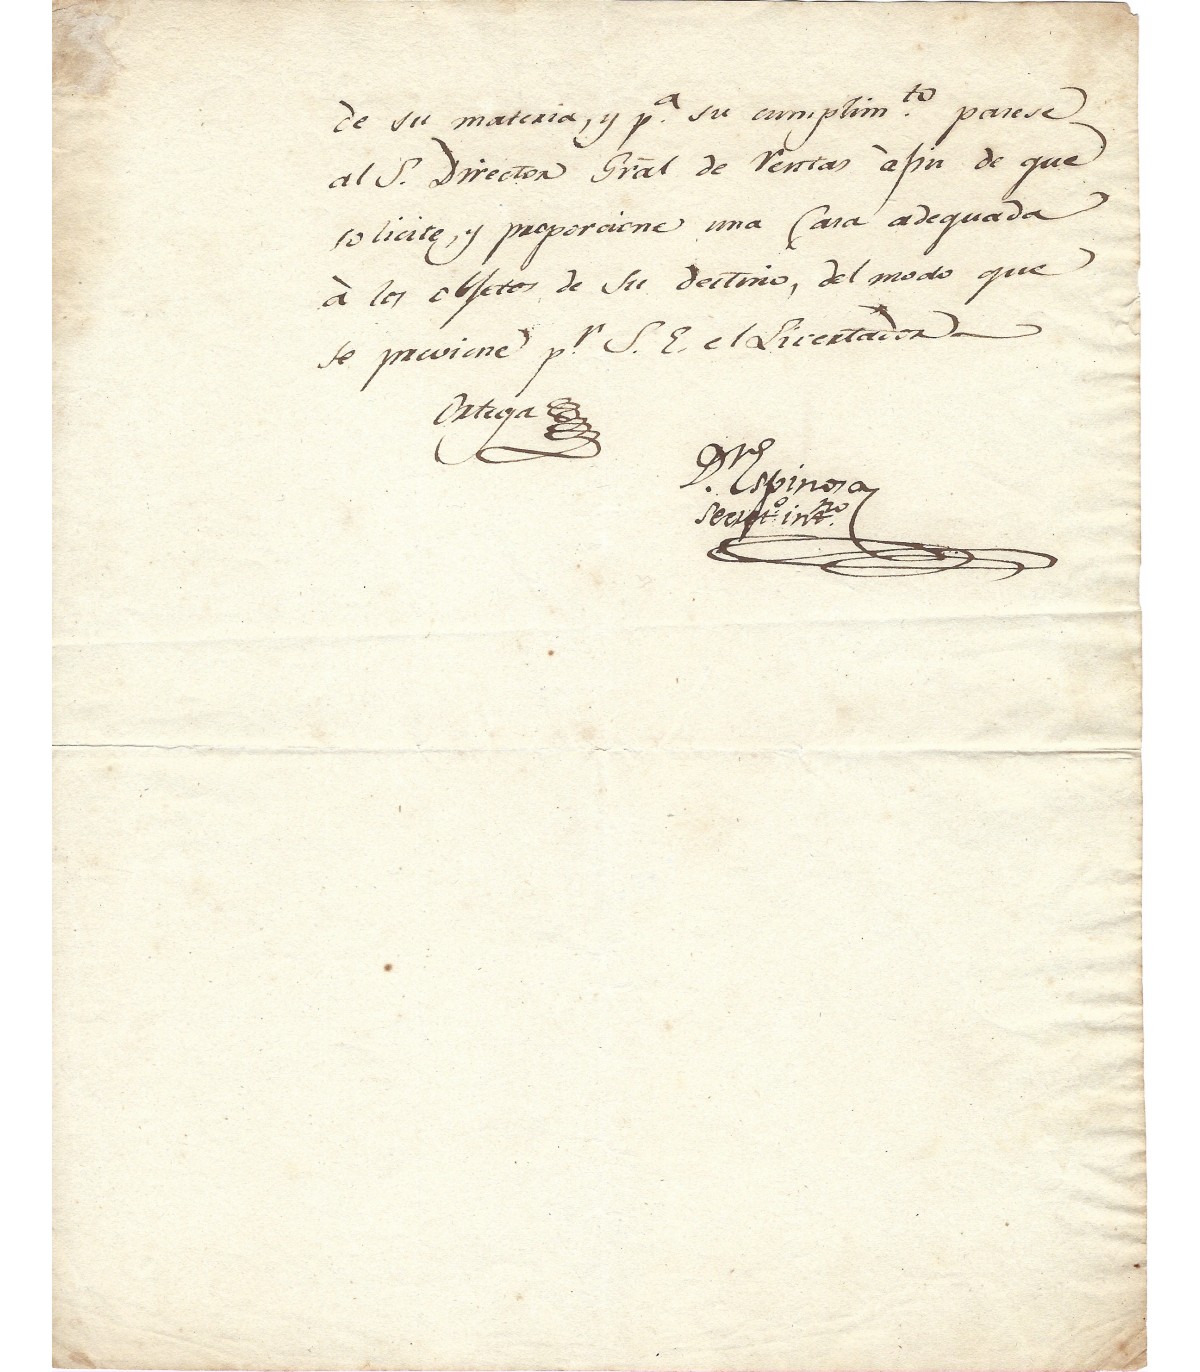 de su materia, y p.ª su cumplim.to parese
al S. Director Gral de Rentas à fin de que
solicite, y proporcione una Casa adequada
à los objetos de su destino, del modo que
se previene p.r S. E. el Livertador
Ortega
D.r Espinosa
Secret.o int.no